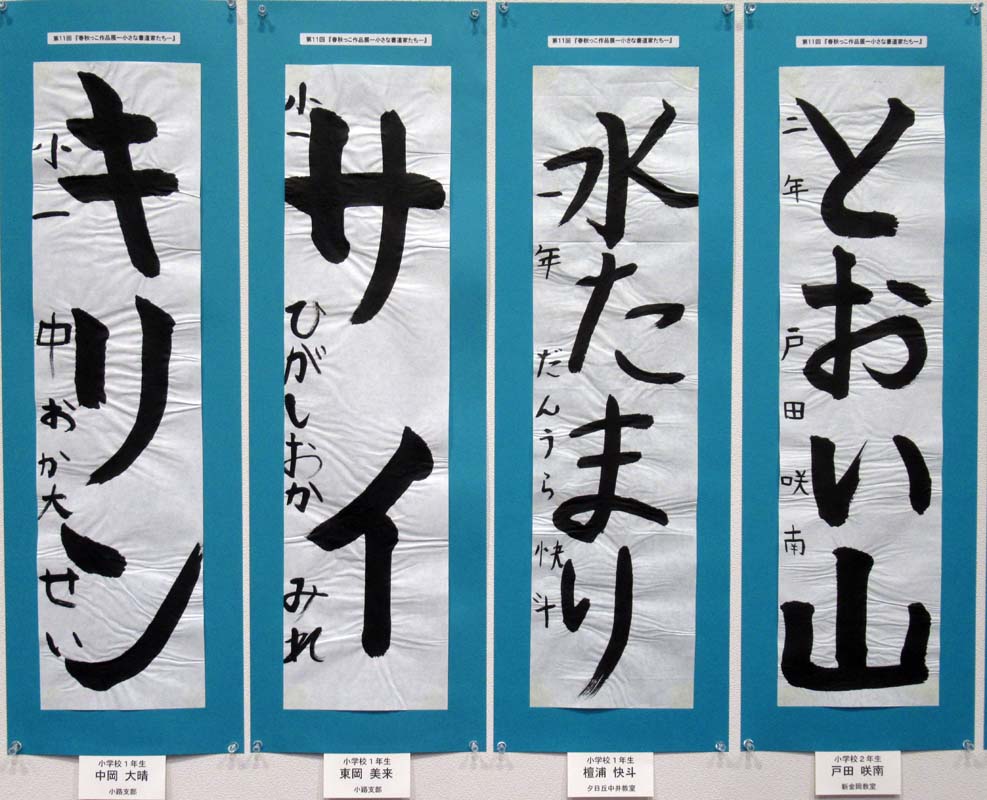 第11回『春秋っこ作品展ー小さな書道家たちー』
キリン
小一 中おか大せい
小学校1年生
中岡 大晴
小路支部
第11回『春秋っこ作品展ー小さな書道家たちー』
サイ
小一 ひがしおか みれ
小学校1年生
東岡 美来
小路支部
第11回『春秋っこ作品展ー小さな書道家たちー』
水たまり
一年 だんうら 快斗
小学校1年生
檀浦 快斗
夕日丘中井教室
第11回『春秋っこ作品展ー小さな書道家たちー』
とおい山
二年 戸田咲南
小学校2年生
戸田 咲南
新金岡教室